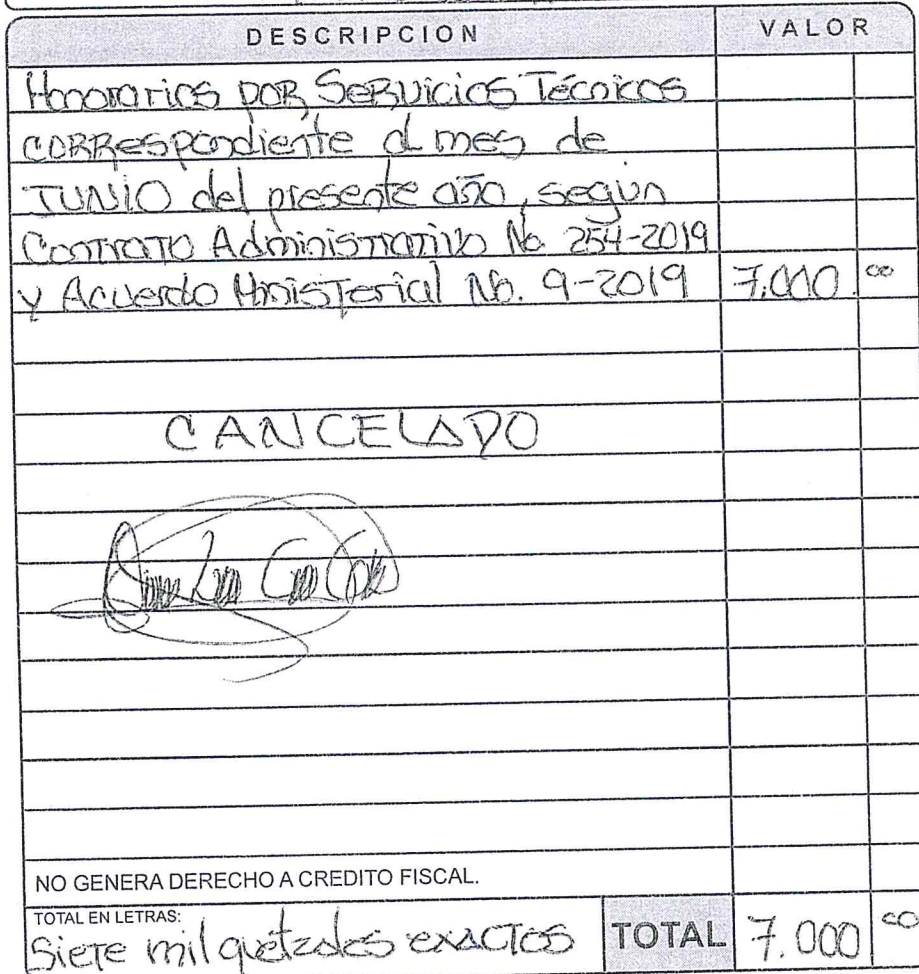 DESCRIPCION VALOR
Honorarios POR SERVICIOS Técnicos
CORRespondiente al mes de
JUNIO del presente año, según
Contrato Administrativo No. 254-2019
y Acuerdo Ministerial No. 9-2019 7,000.00
CANCELADO
NO GENERA DERECHO A CREDITO FISCAL.
TOTAL EN LETRAS:
Siete mil quetzales exactos TOTAL 7.000 00